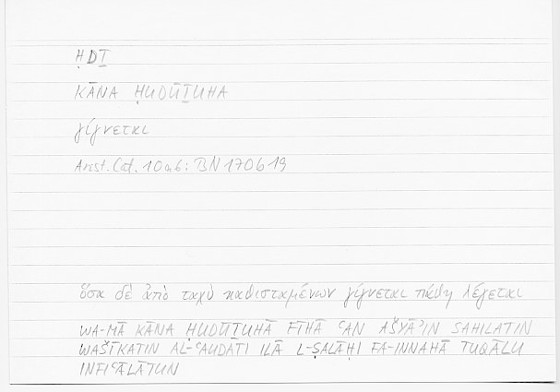 ḤDṮ
KĀNA ḤUDŪṮUHA
γίγνεται
Arist. Cat. 10a6; BN 170b19
ὅσα δὲ ἀπὸ ταχὺ καθισταμένων γίγνεται πάθη λέγεται
WA-MĀ KĀNA ḤUDŪṮUHĀ FĪHĀ ʿAN AŠYĀʾIN SAHILATIN
WAŠĪKATIN AL-ʿAUDATI ILĀ L-ṢALĀḤI FA-INNAHĀ TUQĀLU
INFIʿĀLĀTUN